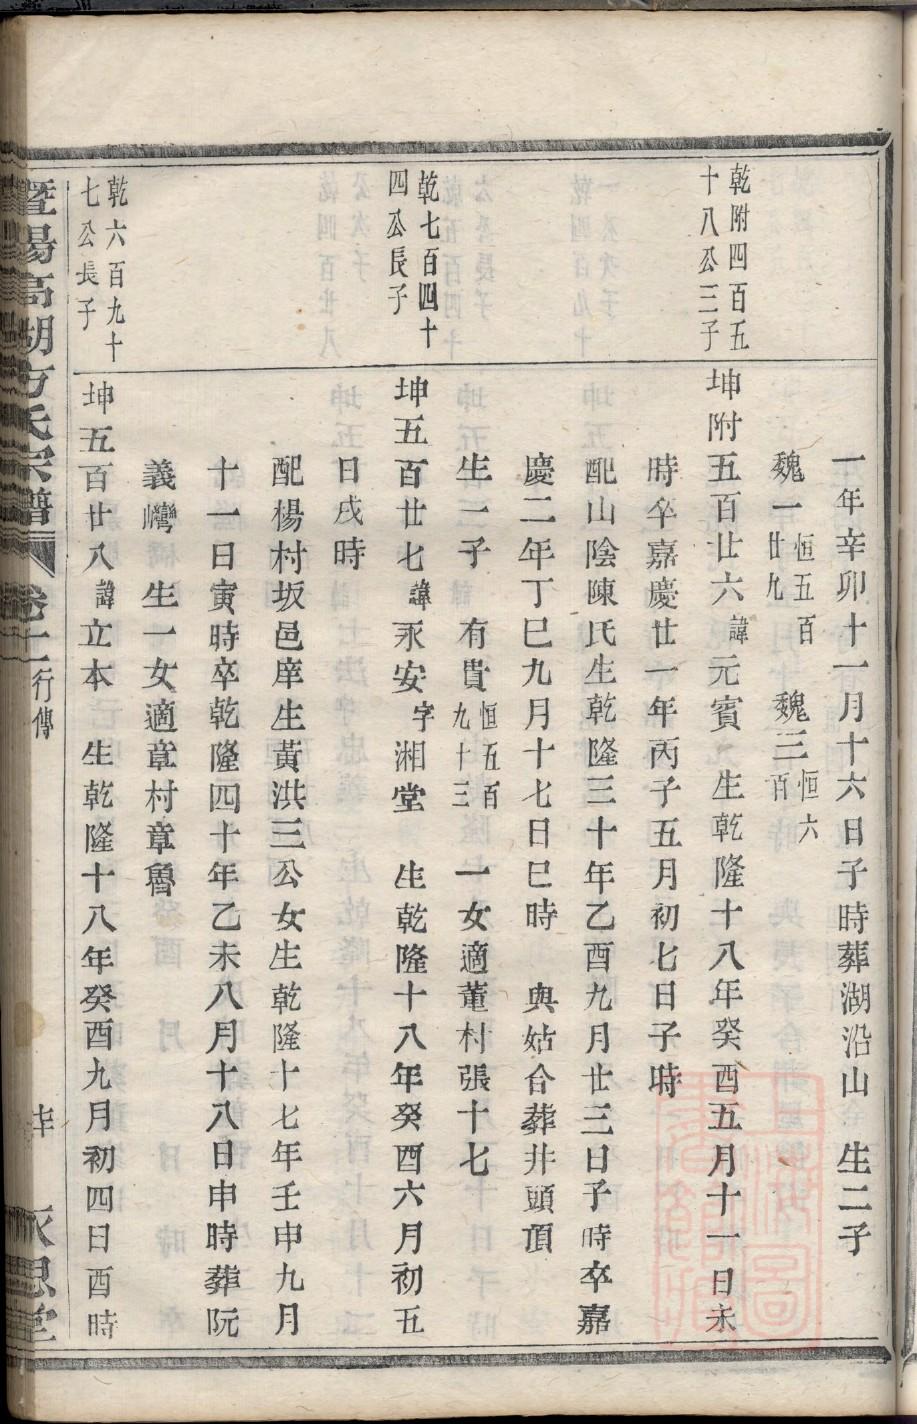 一年辛卯十一月十六日子時葬湖沿山　生二子
魏一恒五百廿九　魏三恒六百
乾附四百五
十八公三子
坤附五百廿六諱元賓　生乾隆十八年癸酉五月十一日未
時卒嘉慶廿一年丙子五月初七日子時
配山陰陳氏生乾隆三十年乙酉九月廿三日子時卒嘉
慶二年丁巳九月十七日巳時　與姑合葬井頭頂
生一子　有貴恒五百九十三　一女適董村張十七
乾七百四十
四公長子
坤五百廿七諱永安字湘堂　生乾隆十八年癸酉六月初五
日戌時
配楊村坂邑庠生黃洪三公女生乾隆十七年壬申九月
十一日寅時卒乾隆四十年乙未八月十八日申時葬阮
義灣　生一女適章村章魯
乾六百九十
七公長子
坤五百廿八諱立本　生乾隆十八年癸酉九月初四日酉時
暨陽高湖方氏宗譜　卷十　行傳　永思堂